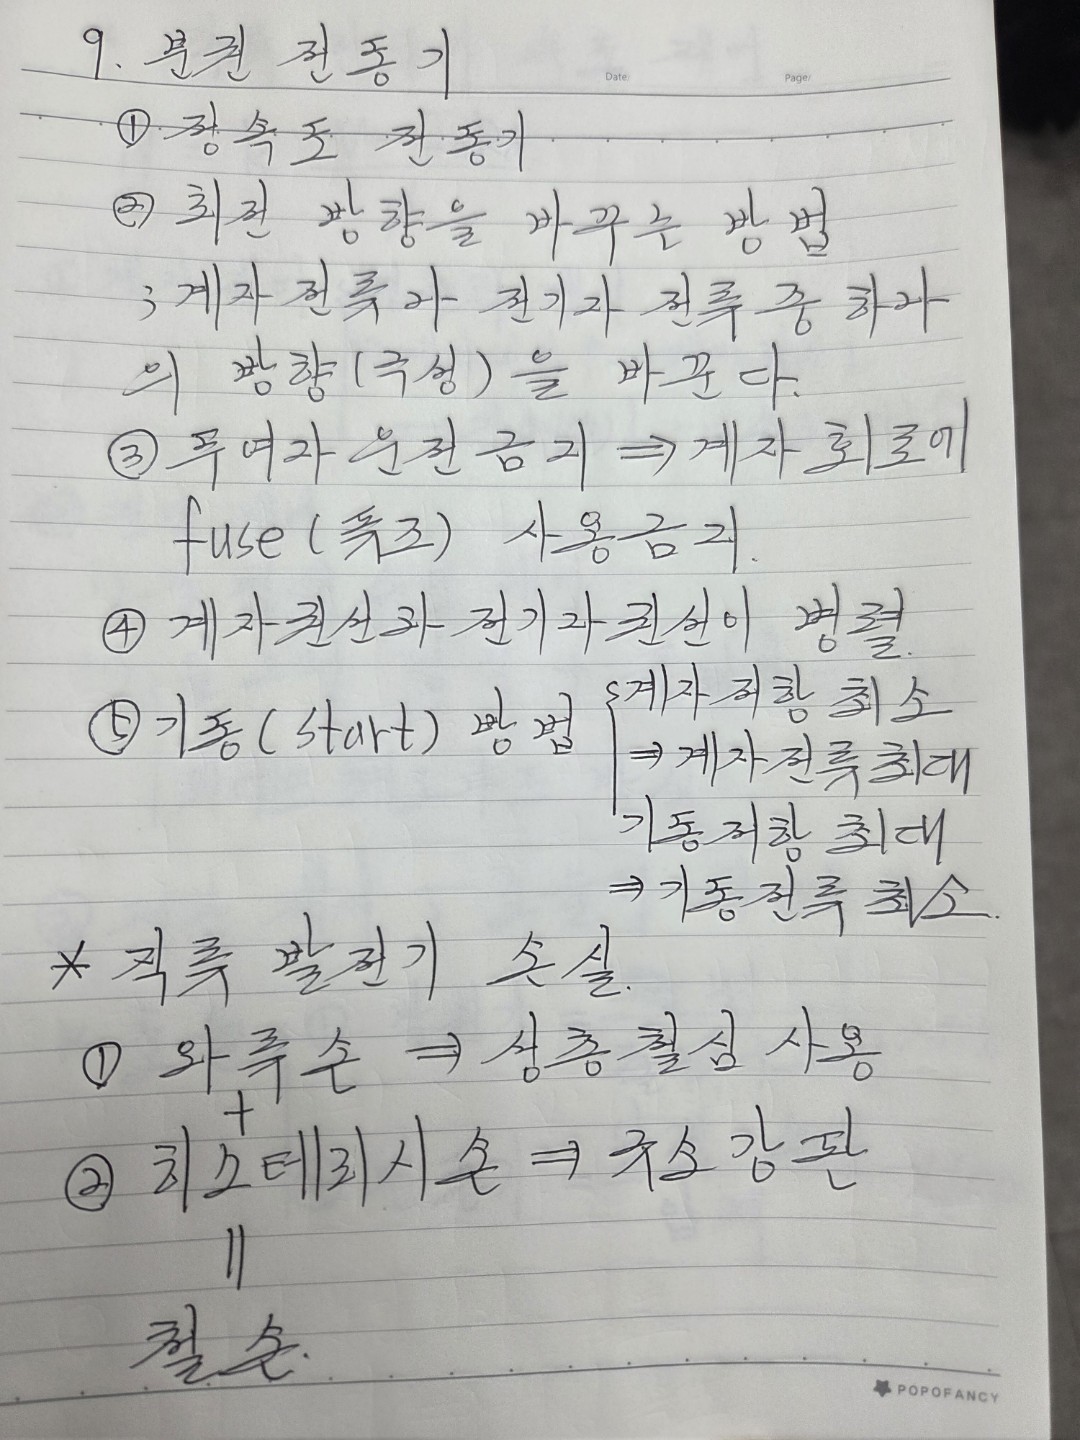 9.분권 전동기
Date Page/
① 정속도 전동기
② 회전 방향을 바꾸는 방법
; 계자전류나 전기자 전류 중 하나
의 방향(극성)을 바꾼다.
③ 무여자 운전금지 ⇒ 계자 회로에
fuse(퓨즈) 사용금지.
④ 계자권선과 전기자권선이 병렬.
⑤ 기동(start) 방법 { 계자저항 최소
⇒ 계자전류 최대
기동저항 최대
⇒ 기동전류 최소.
* 직류 발전기 손실.
① 와류손 ⇒ 성층철심 사용
+
② 히스테리시손 ⇒ 규소강판
||
철손.
POPOFANCY